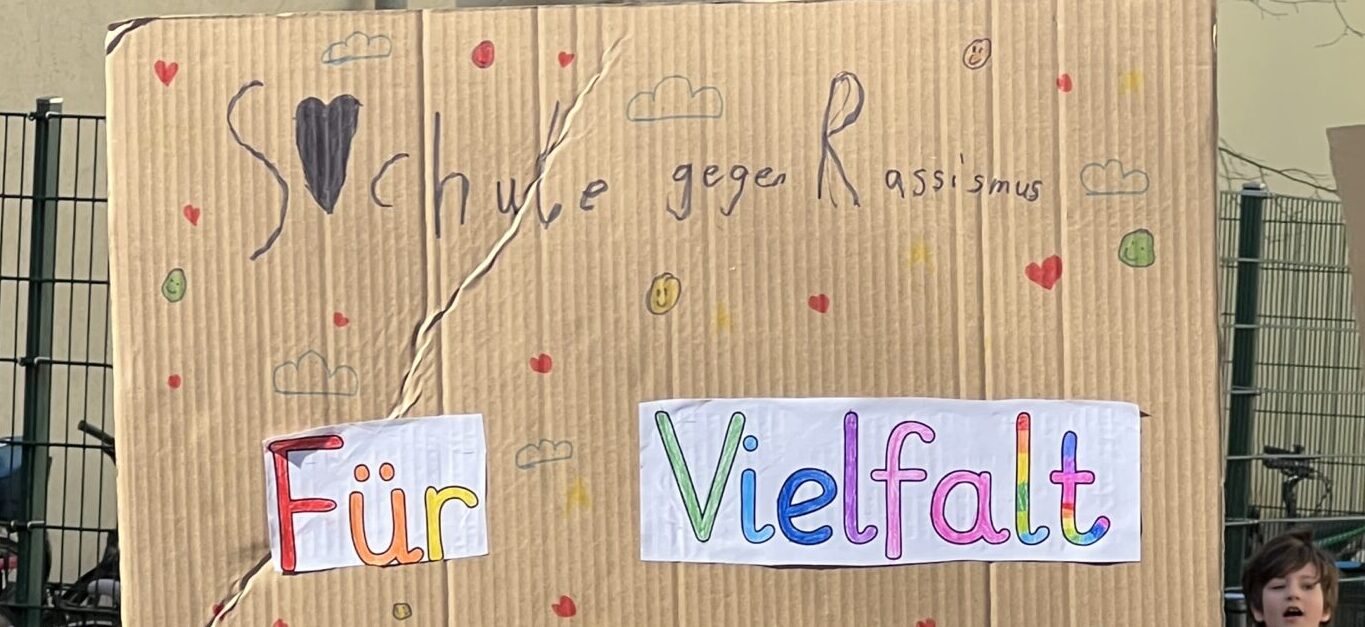 S♥chule gegen Rassismus
Für Vielfalt